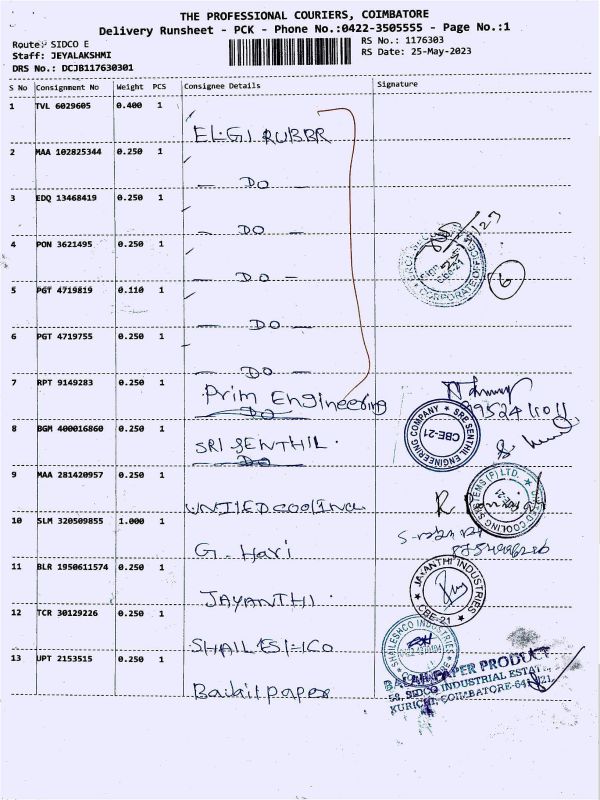 THE PROFESSIONAL COURIERS, COIMBATORE
Delivery Runsheet - PCK - Phone No.:0422-3505555 - Page No.:1
Route: SIDCO E
RS No.: 1176303
Staff: JEYALAKSHMI
RS Date: 25-May-2023
DRS No.: DCJB117630301
S No Consignment No Weight PCS Consignee Details Signature
1 TVL 6029605 0.400 1 EL.GI RUBBR
2 MAA 102825344 0.250 1 — DO —
3 EDQ 13468419 0.250 1 — DO —
4 PON 3621495 0.250 1 — DO —
5 PGT 4719819 0.110 1 — DO —
6 PGT 4719755 0.250 1 — DO —
6
7 RPT 9149283 0.250 1 Prim Engineering
DO
8 BGM 400016860 0.250 1 SRI SENTHIL.
DO
SRE SENTHIL ENGINEERING COMPANY
CBE-21
9 MAA 281420957 0.250 1 UNITED COOLING
10 SLM 320509855 1.000 1 G. Hari
11 BLR 1950611574 0.250 1 JAYANTHI.
JAYANTHI INDUSTRIES
CBE-21
12 TCR 30129226 0.250 1 SHAILESHCO
SHAILESHCO INDUSTRIES
13 UPT 2153515 0.250 1 Bailail paper
BALAJI PAPER PRODUCT
58, SIDCO INDUSTRIAL ESTAT
KURICHI, COIMBATORE-641 021